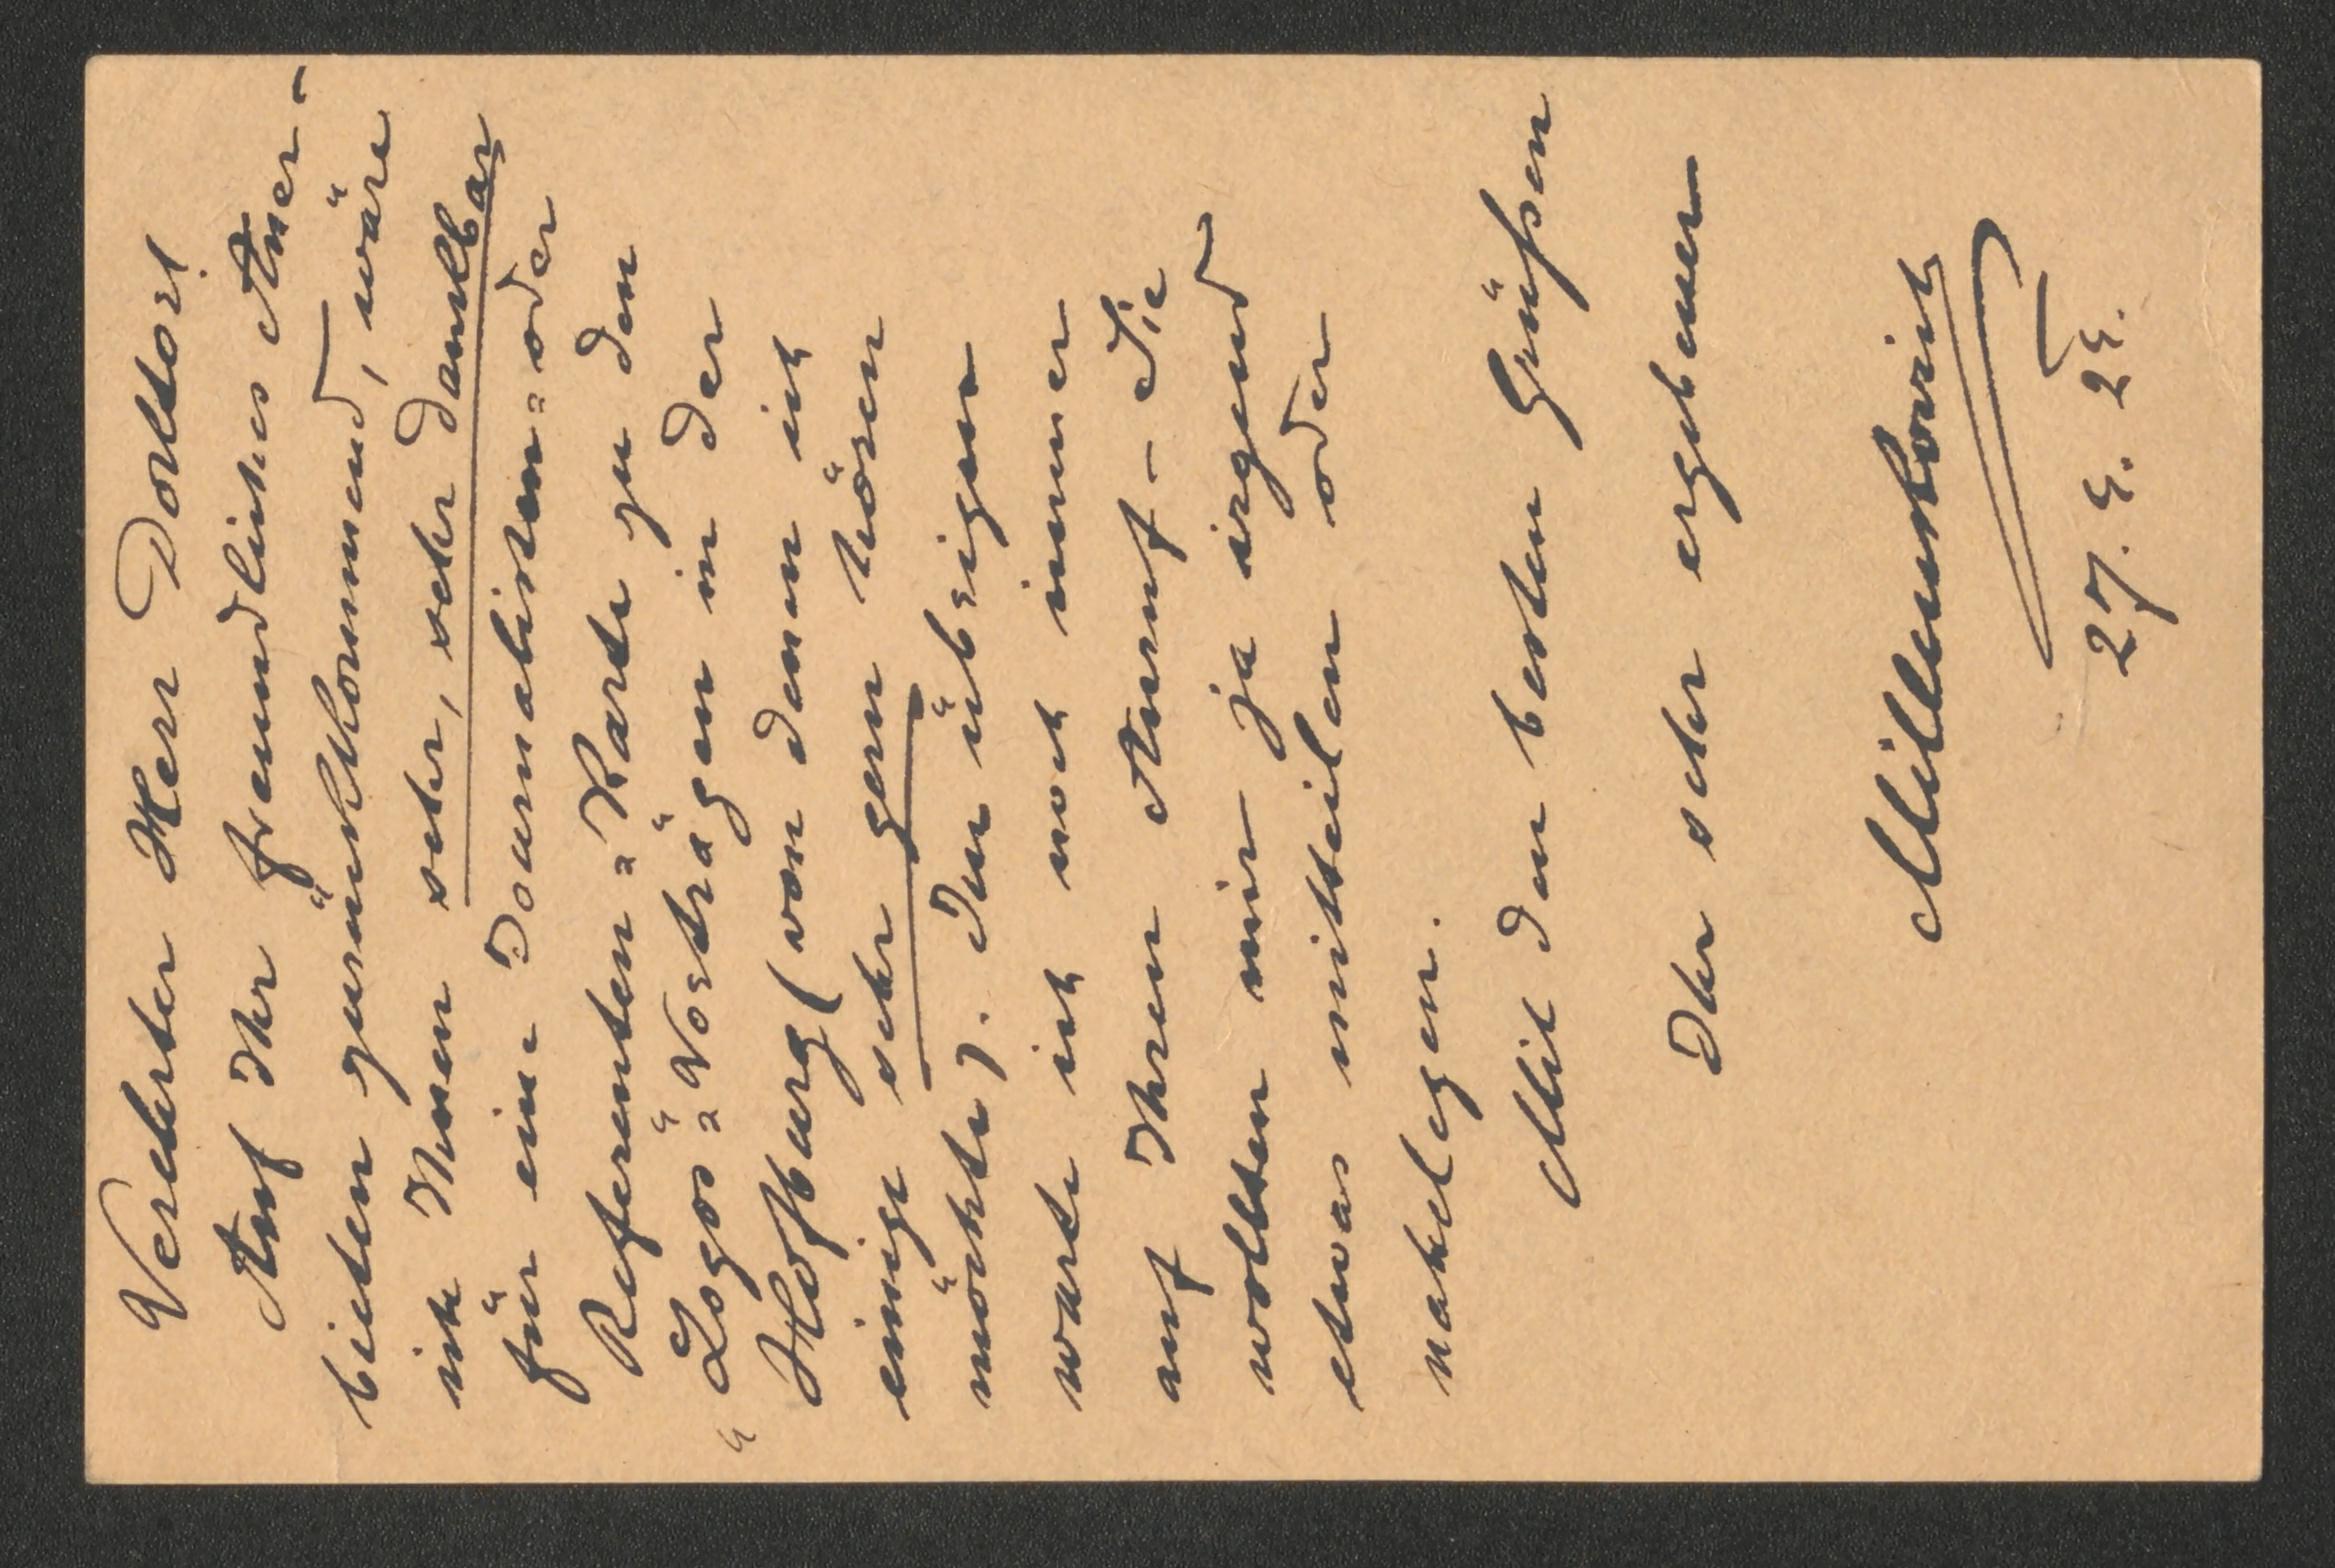 Verehrter Herr Doktor!
Auf Ihr freundliches Aner-
bieten zurückkommend, wäre
ich Ihnen sehr, sehr dankbar
für eine Journalisten= oder
Referenten=Karte zu den
"Logos"=Vorträgen in der
Hofburg (von denen ich
einige sehr gern hören
möchte). Im übrigen
warte ich noch immer
auf Ihren Anruf - Sie
wollten mir ja irgend
etwas mitteilen oder
nahelegen.
Mit den besten Grüßen
Ihr sehr ergebener
Millenkovich
27. 9. 29.